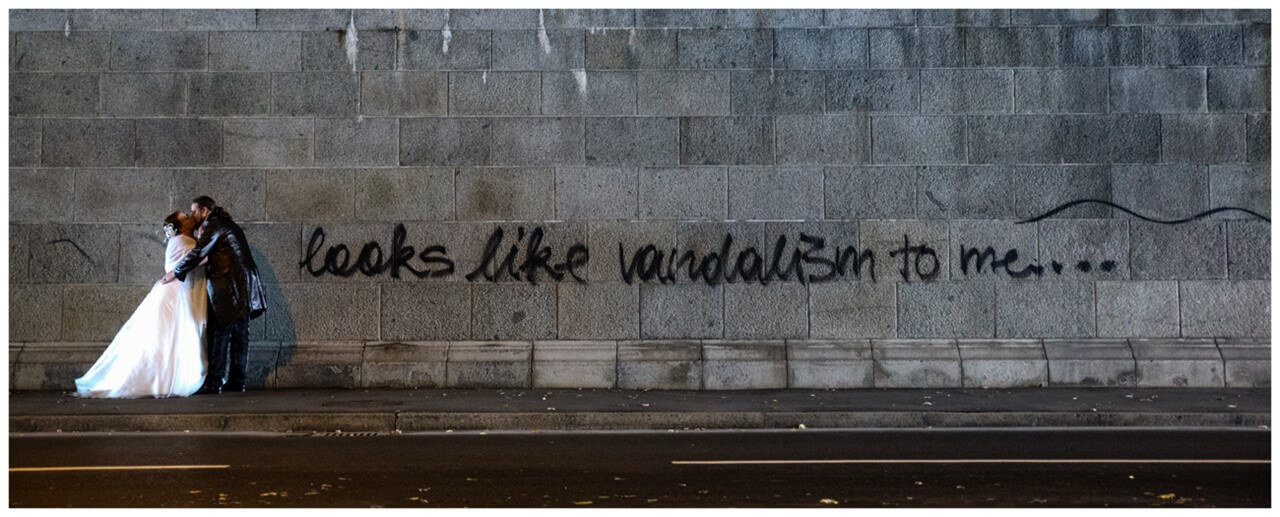 looks like vandalism to me....